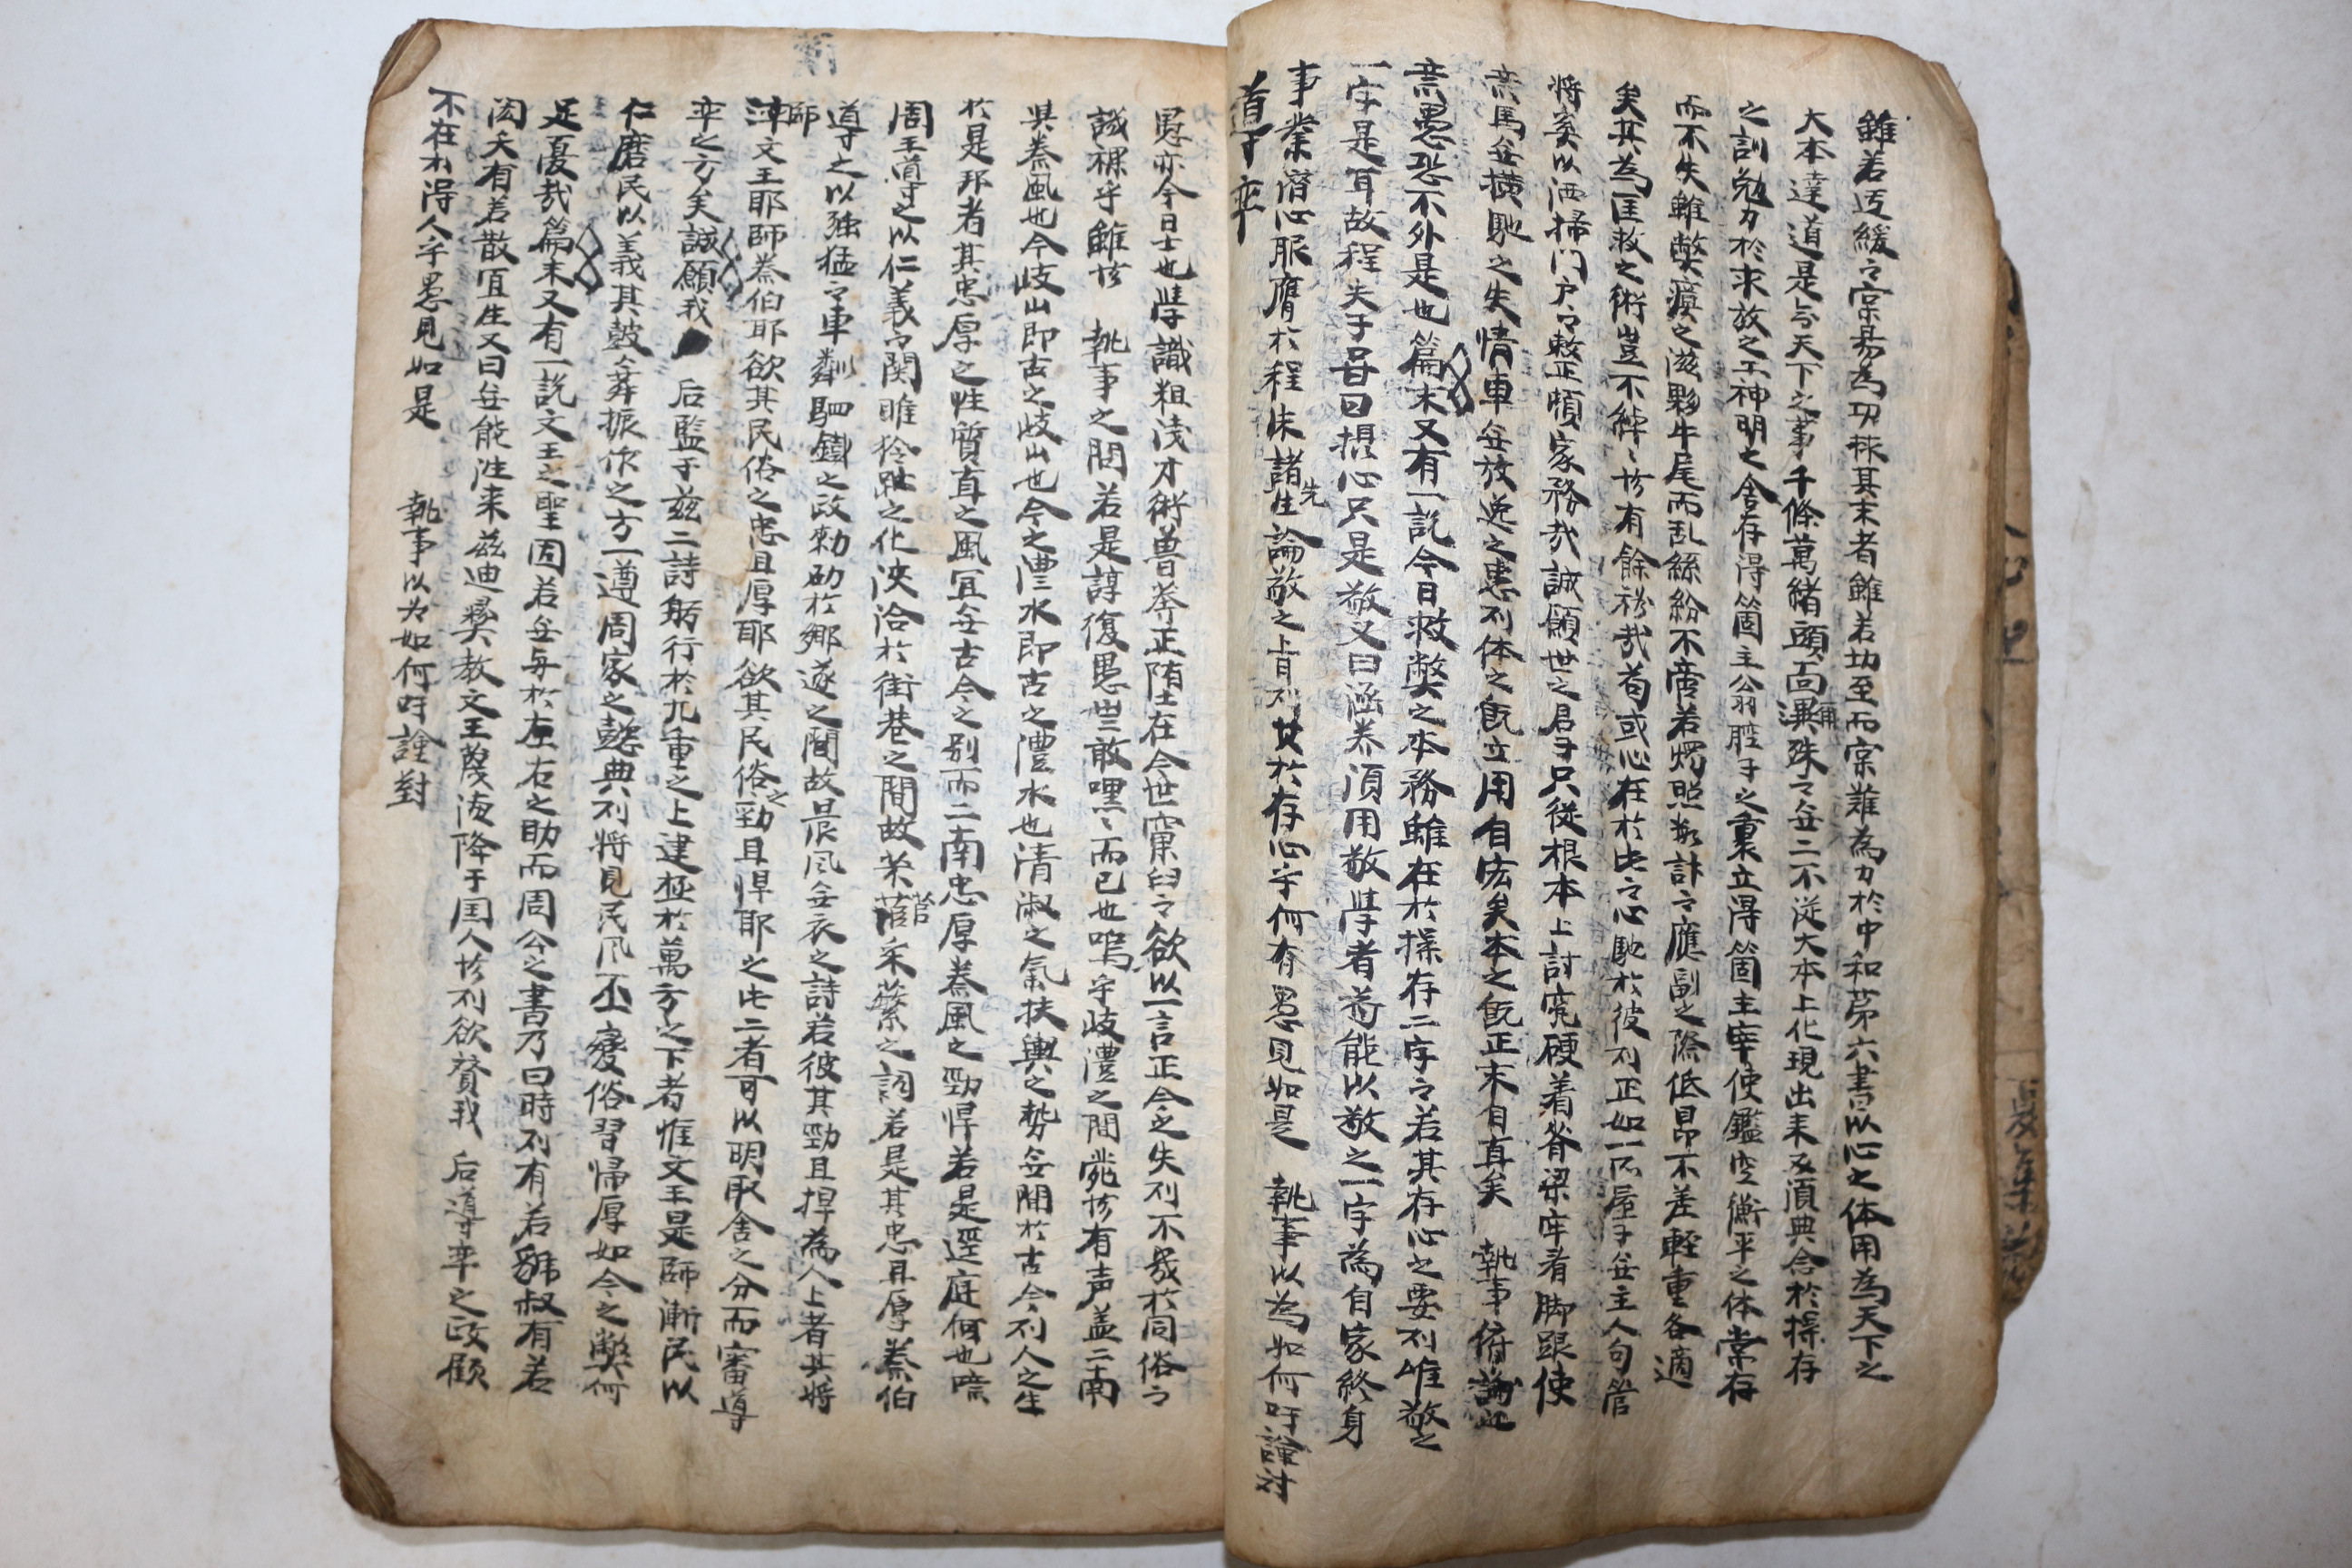 雖若迂緩之實易為功捄其末者雖若切至而實難為力於中和第六書以心之体用為天下之
大本達道是知天下之事千條萬緒頭面渾殊之無二不從大本上化現出来又須典合於操存
之訓勉力於求放之工神明之舍存得箇主翁腔子之裏立得箇主宰使鑑空衡平之体常存
而不失雖獘瘼之滋夥牛尾而乱絲紛不啻若燭照數計之應副之際低昂不差輕重各適
矣其為匡救之術豈不綽綽有餘裕哉苟或心在於此之心馳於彼則正如一不屋子無主人句管
將奚以洒掃門戶之敕正頓家務哉誠願世之君子只從根本上討究硬着脊梁牢着脚跟使
意馬無橫馳之失情車無放逸之患則体之既立用自宏矣本之既正末自直矣 執事俯諭此
意愚恐不外是也篇末又有一說今日救獘之本務雖在於操存二字之若其存心之要則惟敬之
一字是耳故程夫子嘗曰操心只是敬又曰涵养須用敬學者若能以敬之一字為自家終身
事業潛心服膺於程朱諸先生論敬之上旨則其於存心乎何有愚見如是 執事以為如何吁謹对
道于率
愚亦今日士也學識粗淺才術魯莽正陷在今世窠臼之欲以一言正今之失則不幾於同俗之
誠裸乎雖然 執事之問若是諄復愚豈敢嘿嘿而已也嗚乎岐灃之間 有声盖二南
與秦風也今岐山即古之岐山也今之灃水即古之灃水也清淑之氣扶輿之勢無間於古今則人之生
於是邦者其忠厚之性質直之風宜無古今之別而二南忠厚秦風之勁悍若是逕庭何也噫
周王導之以仁義之関雎猗趾之化浹洽於街巷之間故芣菅采蘩之詞若是其忠且厚秦伯
導之以强猛之車鄰駟鐵之政勅励於鄉遂之間故晨风無衣之詩若彼其勁且捍為人上者其將
師文王耶師秦伯耶欲其民俗之忠且厚耶欲其民俗之勁且悍耶之此二者可以明取舍之分而審導
率之方矣誠願我 后監于茲二詩躬行於九重之上建極於萬方之下者惟文王是師漸民以
仁磨民以義其鼓舞振作之方一遵周家之懿典則將見民风丕變俗習歸厚如今之獘何
足憂哉篇末又有一說文王之聖固若無毎於左右之助而周公之書乃曰時則有若虢叔有若
閎夭有若散宜生又曰無能往来茲迪彝教文王蔑德降于国人然則欲賛我 后導率之政顧
不在於得人乎愚見如是 執事以为如何吁謹對